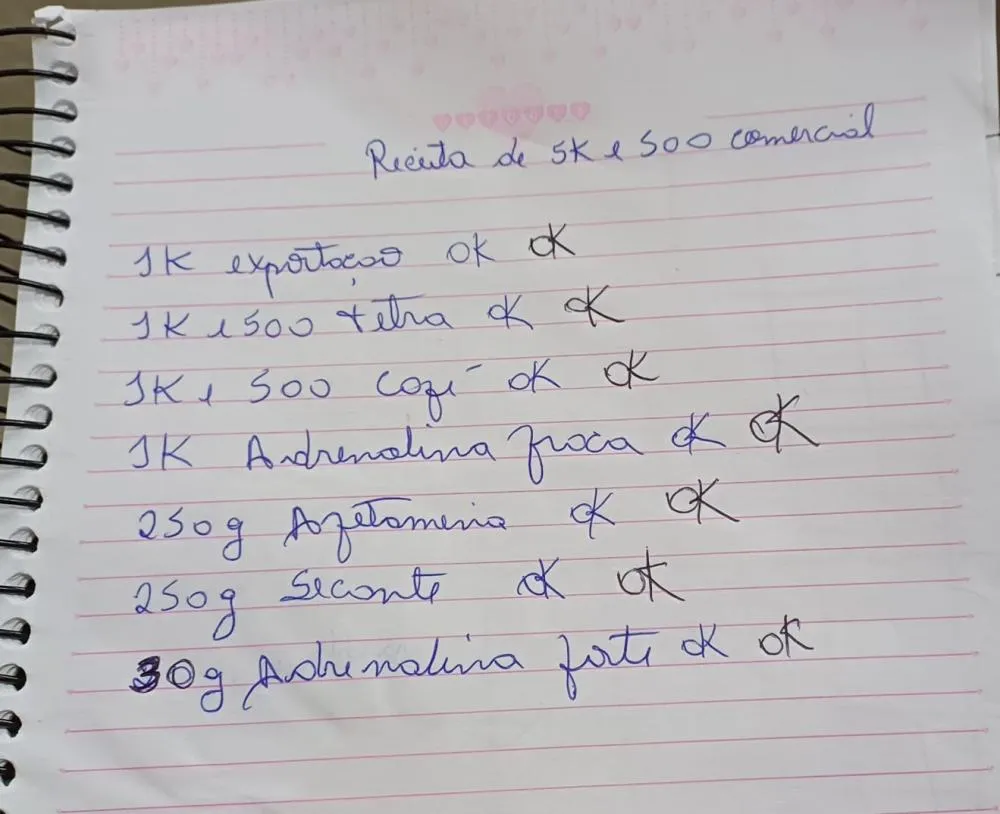 Receita de 5K e 500 comercial
1K exportação OK OK
1K e 500 tetra OK OK
1K e 500 cozi OK OK
1K Adrenalina fraca OK OK
250g OK OK
250g Secante OK OK
30g Adrenalina forte OK OK